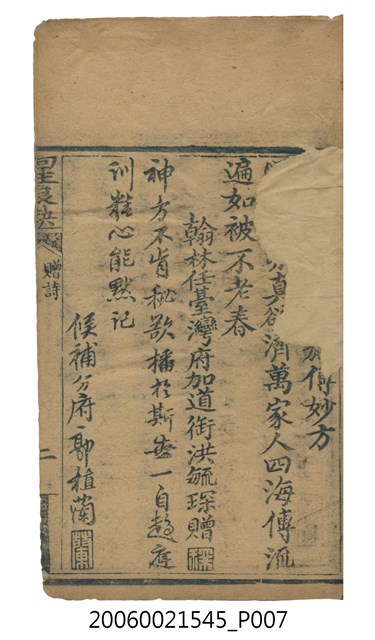 傳妙方
真欲濟萬家人四海傳流
遍如被不老春
翰林任臺灣府加道銜洪毓琛贈
神方不肯秘欲播於斯世一自趨庭
訓難心能默記
候補分府郭植蘭
贈詩
二
20060021545_P007